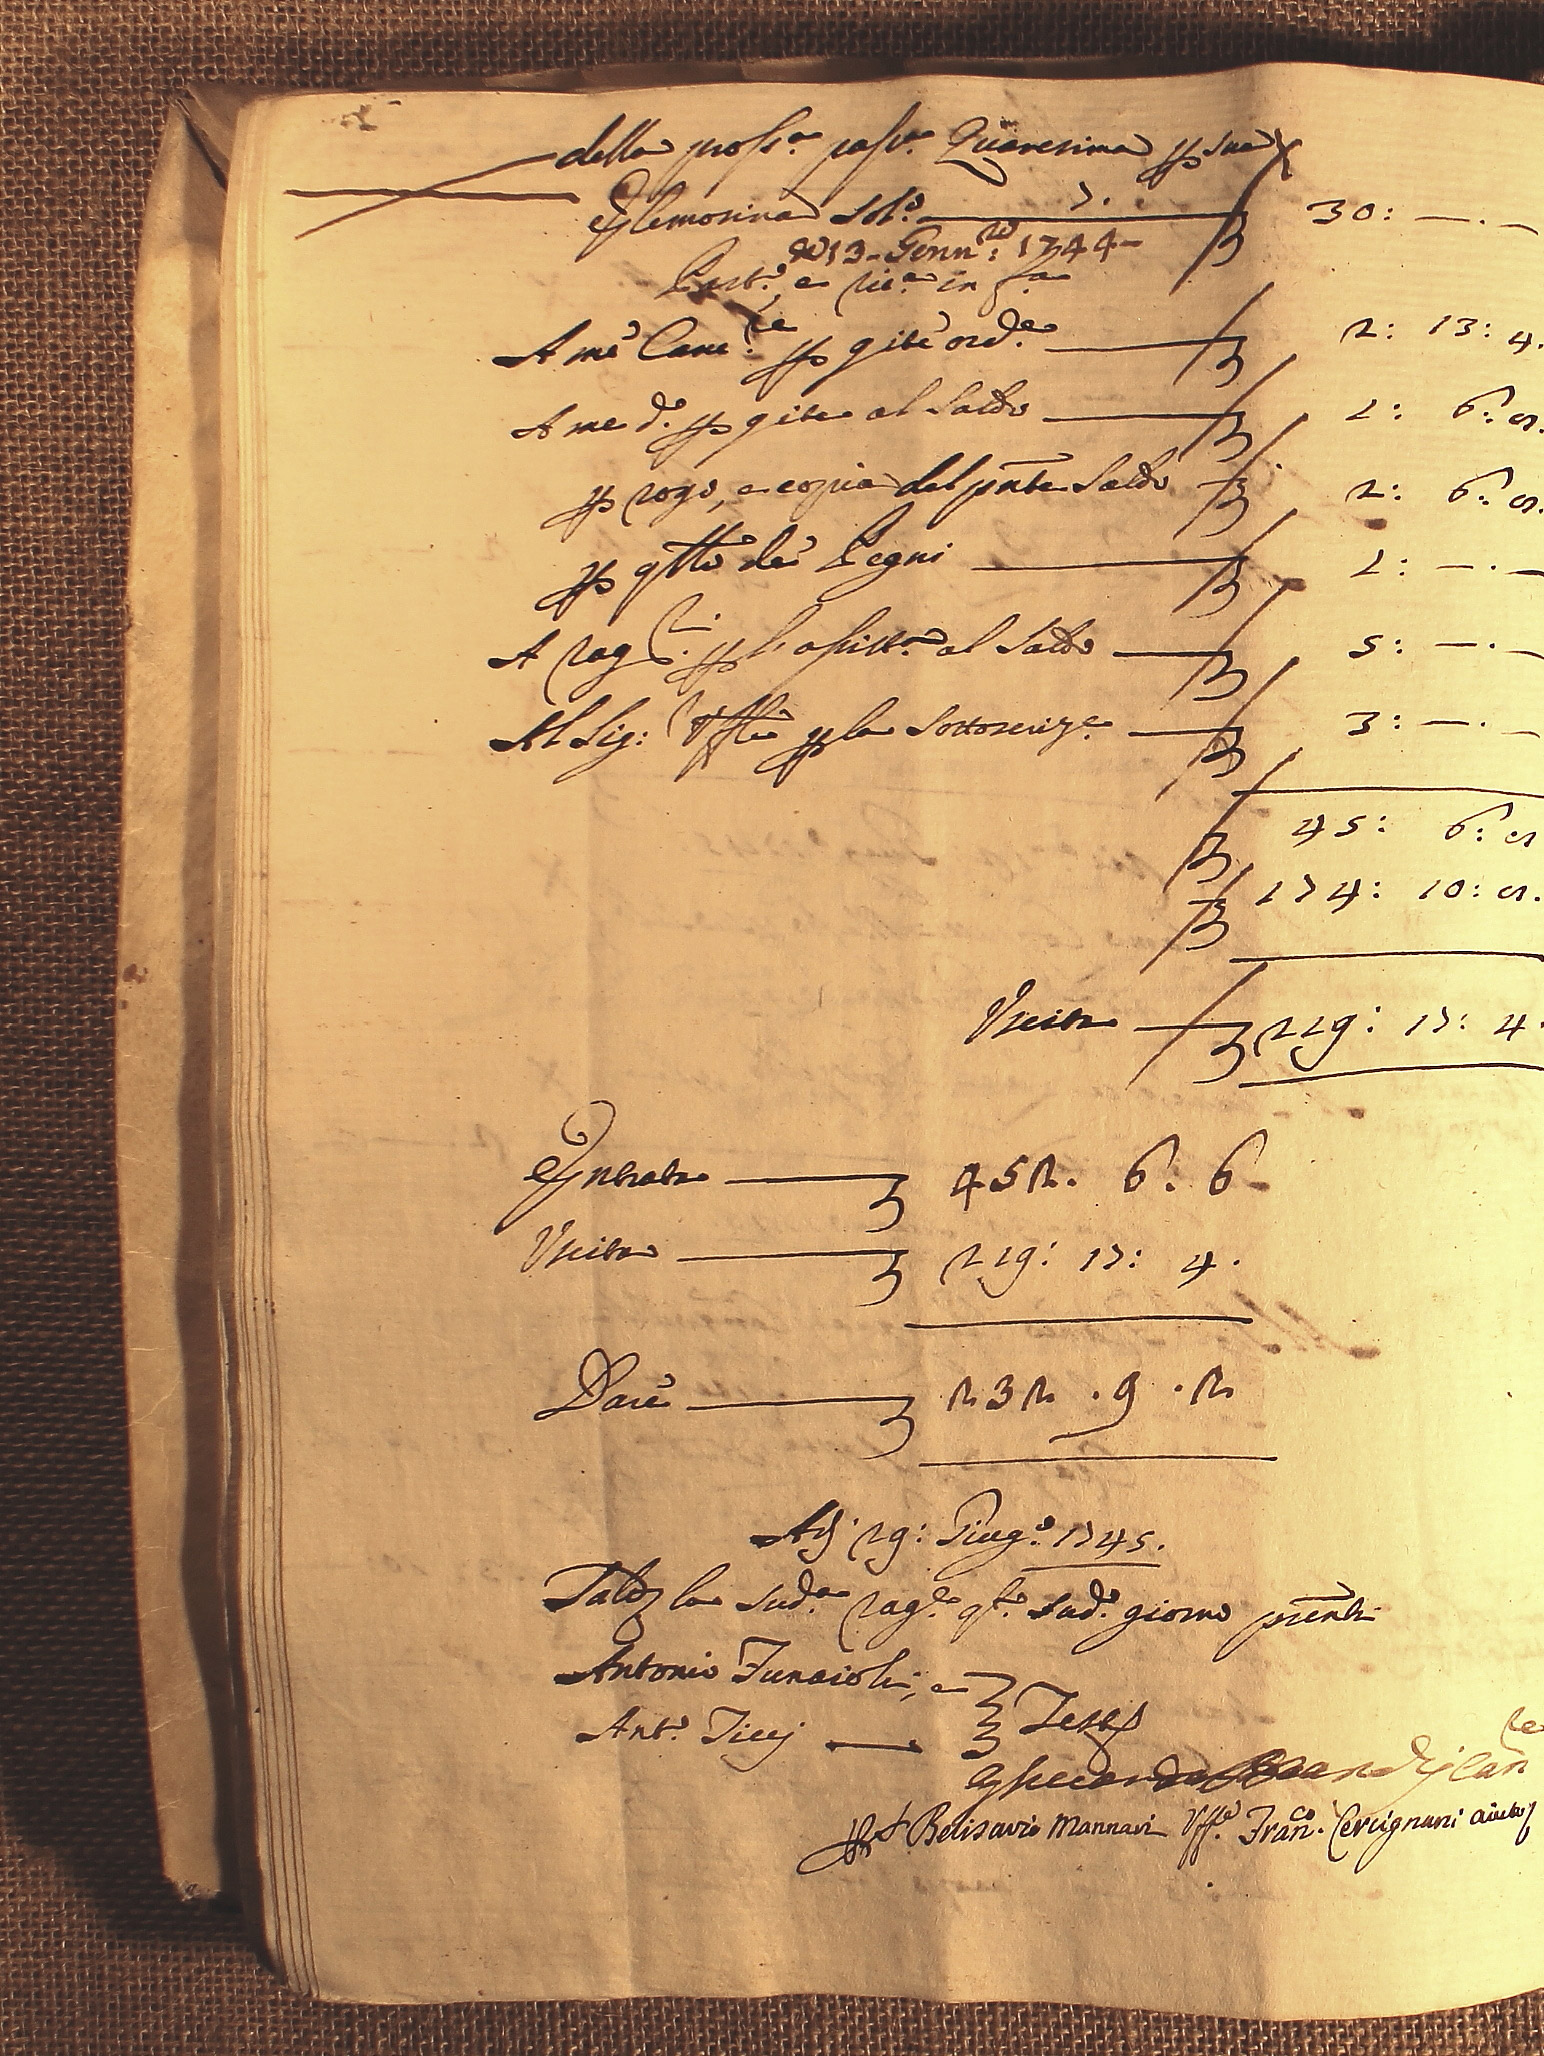 della pross.a pass.a Quaresima p sua
Elemosina sol.o 7. 30: —.—
de 13 - Genn.ro: 1744 -
e ric.a in f.a
A me Canc.re p gite ord.e 2: 13: 4.
A me d.o p gite al Saldo 1: 6: 8.
p rogo, e copia del pnte Saldo 2: 6: 8.
p gtto dei Pegni 1: —.—
A rag.re p l'assist.a al Saldo 5: —.—
Al Sig:r Uffle p la Sottoscriz.e 3: —.—
45: 6: 8
174: 10: 8.
Uscita 219: 17: 4.
Entrata 452. 6. 6
Uscita 219: 17: 4.
Dare 232. 9. 2
Adj 29: Giug.o 1745.
Saldo la sud.a rag.e q.to sud.o giorno pnti
Antonio Funaioli, e
Ant.o Ticcj Testj
Canre
Belisario Mannari Uff.e Fran.co Cercignani aiuto